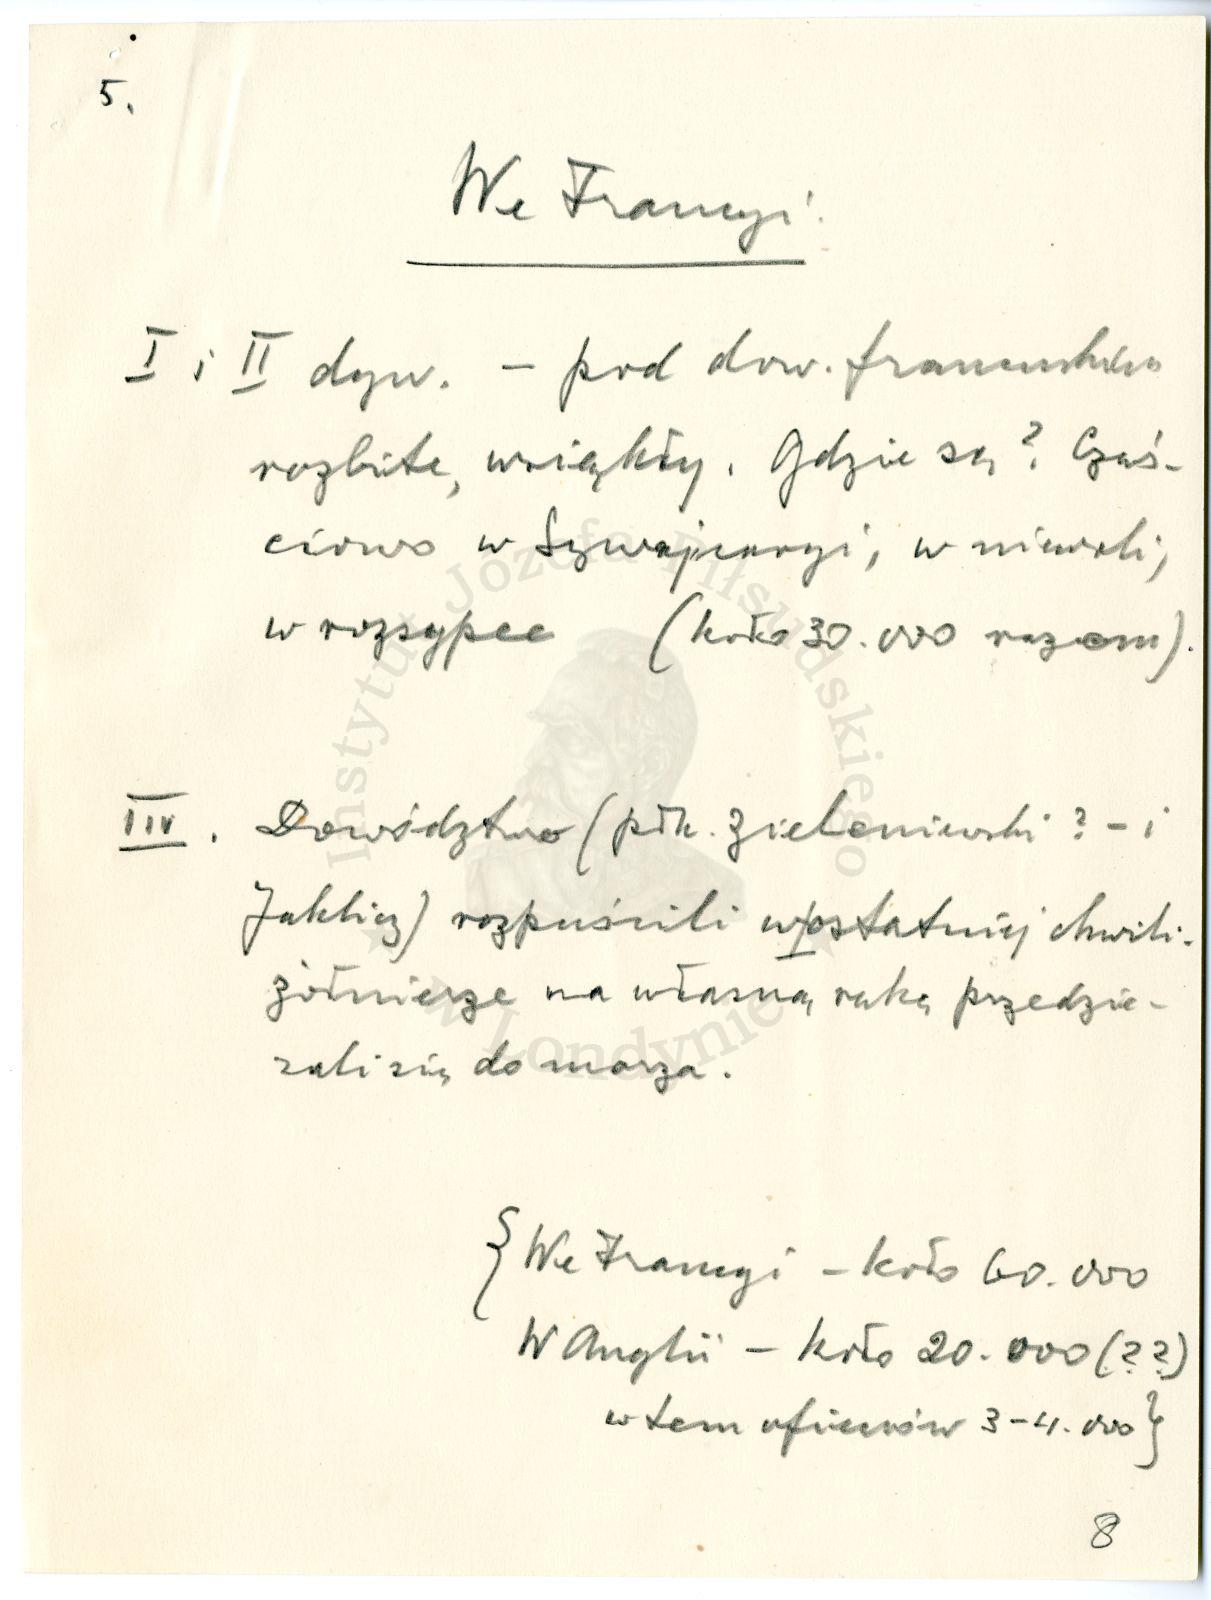 5.
We Francyi.
I i II dyw. – pod dow. francuskim
rozbite, wsiąkły. Gdzie są? Częś-
ciowo w Szwajcaryi, w niewoli,
w rozsypce (koło 30.000 razem).
III/IV. Dowództwo (płk. Zieleniewski? – i
Jaklicz) rozpuścili w ostatniej chwili.
żołnierze na własną rękę przedzie-
rali się do morza.
{We Francyi – koło 60.000
W Anglii – koło 20.000 (??)
w tem oficerów 3–4.000}
8
Instytut Józefa Piłsudskiego
w Londynie